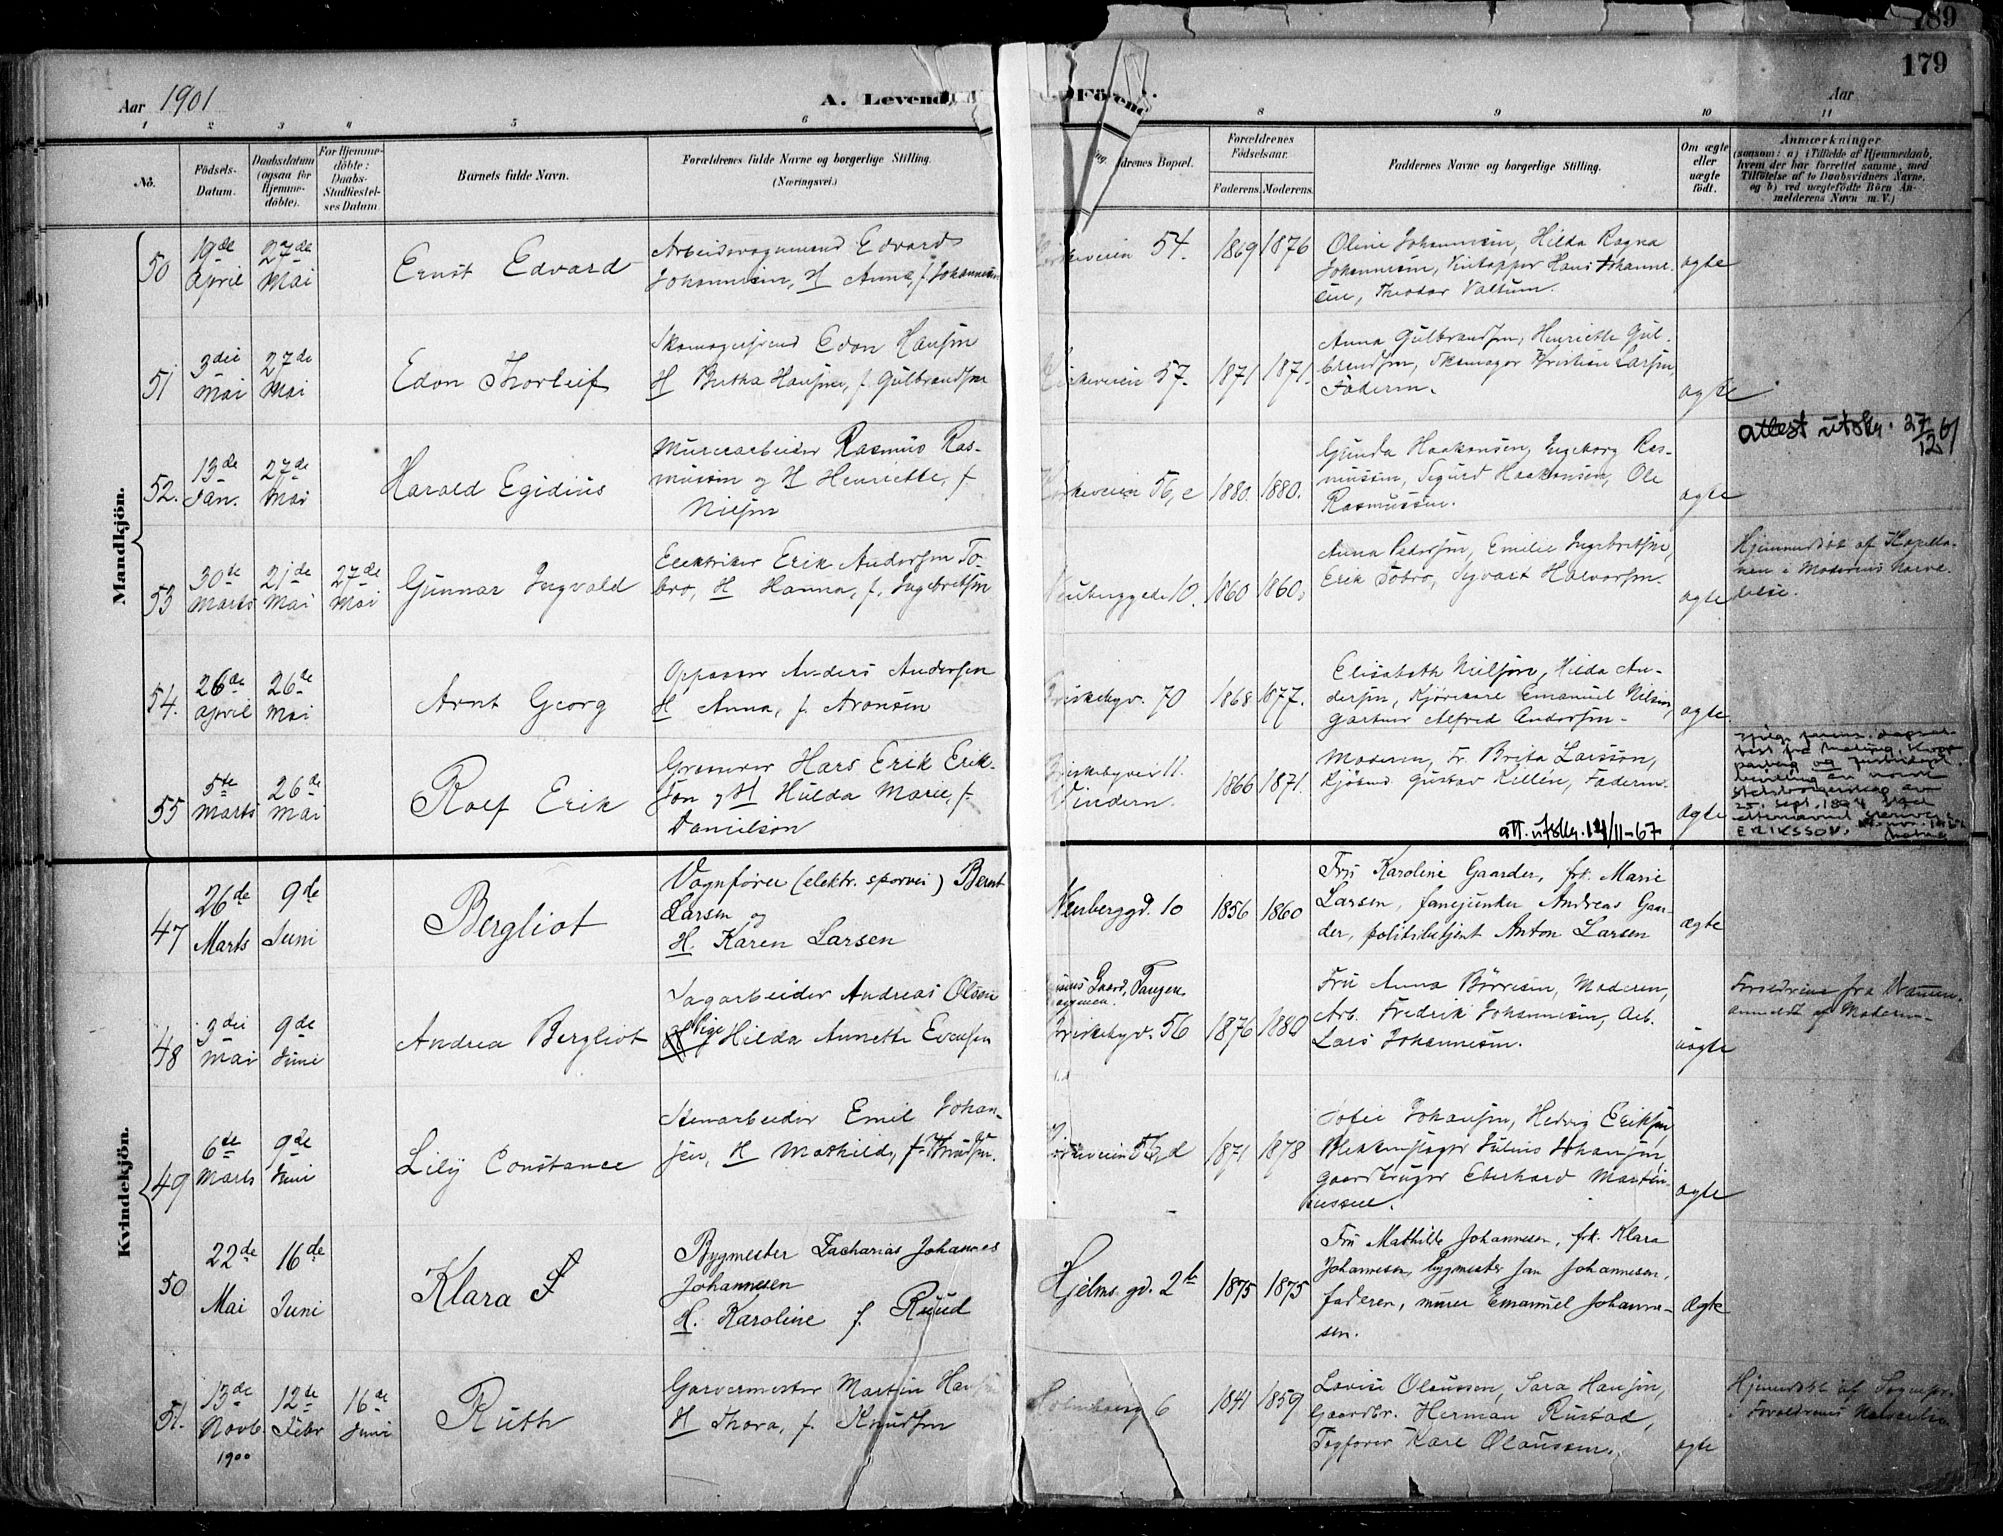 189
179
Aar 1901
A. Levend
Föd
Aar
1
2
3
4
5
6
8
9
10
11
No.
Födsels-
Datum.
Daabsdatum
(ogsaa for
Hjemme-
döbte).
For Hjemme-
döbte:
Daabs-
Stadfæstel-
ses Datum
Barnets fulde Navn.
Forældrenes fulde Navne og borgerlige Stilling.
(Næringsvei.)
drenes Bopæl.
Forældrenes
Födselsaar.
Faderens.
Moderens.
Faddernes Navne og borgerlige Stilling.
Om ægte
eller
uægte
födt.
Anmærkninger
(saasom: a) i Tilfælde af Hjemmedaab,
hvem der har forrettet samme, med
Tilföielse af to Daabsvidners Navne,
og b) ved uægtefödte Börn An-
melderens Navn m. V.)
Mandkjön.
50
19de
April
27de
Mai
Ernst Edvard
Arbeidsvognmand Edvard
Johannesen, H Anna, f. Johannesen
Kirkeveien 54.
1869
1876
Oline Johannesen, Hilda Ragna
Johannesen, Vintapper Hans Johanne-
sen, Theodor Valtum.
ægte
51
3die
Mai
27de
Mai
Edon Thorleif
Skomagersvend Edon Hansen
H Birtha Hansen, f. Gulbrandsen
Kirkeveien 57.
1871
1871.
Anna Gulbrandsen, Henriette Gul-
brandsen, Skomager Kristian Larsen,
Faderen.
ægte
attest utskr. 27/12 61
52.
13de
Jan.
27de
Mai
Harald Egidius
Murerarbeider Rasmus Ras-
mussen og H Henriette, f
Nilsen
Kirkeveien 56, c
1880.
1880.
Gunda Haakonsen, Ingeborg Ras-
mussen, Sigurd Haakonsen, Ole
Rasmussen.
ægte
53
30de
Marts
21de
Mai
27de
Mai
Gunnar Ingvald
Elektriker Erik Andersen To-
bro, H Hanna, f. Ingebretsen
Neuberggade 10.
1860
1860.
Anna Pedersen, Emilie Ingebretsen,
Erik Töbro, Syvart Halvorsen.
ægte
Hjemmedöbt af Kapella-
nen i Moderens Nærva-
relse.
54.
26de
April
26de
Mai
Arnt Georg
Oppasser Anders Andersen
H Anna, f. Aronsen
Briskebyv. 70
1868
1877.
Elisabeth Nilsen, Hilda An-
dersen, Kjörekarl Emanuel Nilsen,
Gartner Alfred Andersen.
ægte.
55
5te
Marts
26de
Mai
Rolf Erik
Graverer Hans Erik Erik-
son og H Hulda Marie, f.
Danielson
Briskebyvei 11.
Vindern.
1866
1871.
Moderen, Fr. Brita Larsson,
Kjöbmd Gustav Killén, Faderen.
att. utskr. 14/11-67
ægte
25. sept. 1894
ERIKSSON.
Kvindekjön.
47
26de
Marts
9de
Juni
Bergliot
Vognförer (elektr. sporvei) Bernt
Larsen og
H. Karen Larsen
Neuberggd. 10
1856
1860
Fru Karoline Gaarder, frk. Marie
Larsen, fanejunker Andreas Gaar-
der, politibetjent Anton Larsen
ægte
48
3die
Mai
9de
Juni
Andrea Bergliot
Dagarbeider Andreas Olsen
og Pige Hilda Annette Evensen
Gaard, Tangen,
Briskebyv. 56
1876
1880
Fru Anna Börresen, Moderen,
Arb. Fredrik Johannesen, Arb.
Lars Johannesen.
uægte
Forældrene fra Drammen.
anmeldt af Moderen.
49
6te
Marts
9de
Juni
Lily Constance
Stenarbeider Emil Johan-
sen, H Mathilde, f. Knudsen.
Kirkeveien 56, d
1871
1878
Sofie Johansen, Hedvig Eriksen,
Blikkenslager Julius Johansen,
Gaardbruger Eberhard Martin-
iussen.
ægte
50
22de
Mai
16de
Juni
Klara
Bygmester Zacharias Johannes
Johannesen
H. Karoline f. Ruud
Hjelms gd. 2b
1875
1875
Fru Mathilde Johannesen, frk. Klara
Johannesen, bygmester Jan Johannesen,
faderen, murer Emanuel Johanne-
sen.
Ægte
51.
13de
Novb.
1900
12te
Febr
16de
Juni
Ruth
Garvermester Martin Hansen
H Thora, f. Knudsen
Holmboeg 6
1841
1859
Lovise Olaussen, Sara Hansen,
Gaardbr. Herman Rustad,
Togförer Karl Olaussen.
ægte
Hjemmedöbt af Sognepr.
i Forældrenes